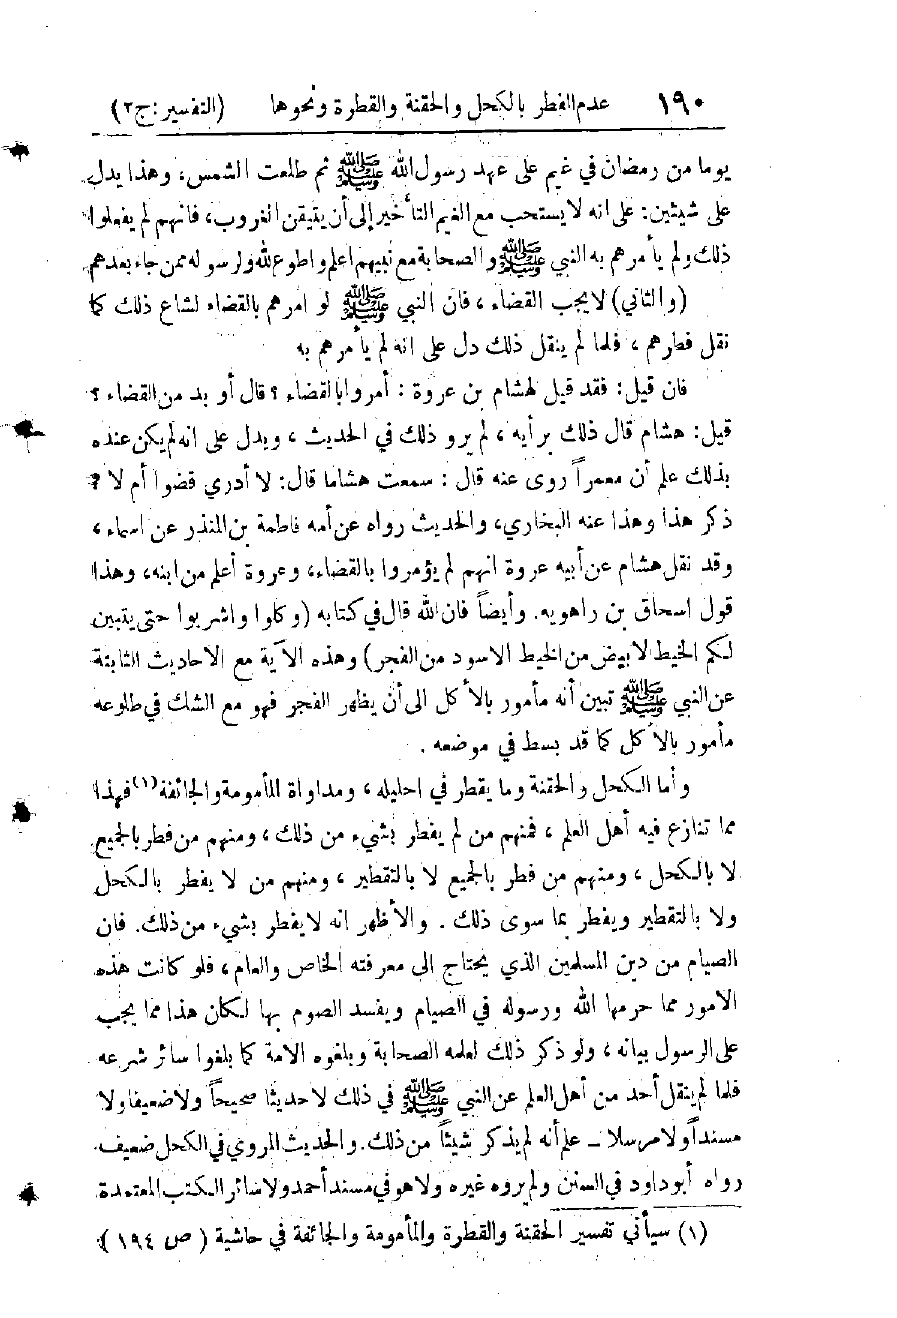 ١٩٠ عدم الفطر بالكحل والحقنة والقطرة ونحوها (التفسير: ج٢)
يوما من رمضان في غيم على عهد رسول الله ﷺ ثم طلعت الشمس، وهذا يدل
على شيئين: على انه لا يستحب مع الغيم التأخير إلى أن يتيقن الغروب، فانهم لم يفعلوا
ذلك ولم يأمرهم به النبي ﷺ والصحابة مع نبيهم اعلم واطوع لله ولرسوله ممن جاء بعدهم
(والثاني) لا يجب القضاء، فان النبي ﷺ لو امرهم بالقضاء لشاع ذلك كما
نقل فطرهم، فلما لم ينقل ذلك دل على انه لم يأمرهم به
فان قيل: فقد قيل لهشام بن عروة: أمروا بالقضاء؟ قال أو بد من القضاء؟
قيل: هشام قال ذلك برأيه، لم يرو ذلك في الحديث، ويدل على انه لم يكن عنده
بذلك علم أن معمراً روى عنه قال: سمعت هشاما قال: لا أدري قضوا أم لا؟
ذكر هذا وهذا عنه البخاري، والحديث رواه عن أمه فاطمة بن المنذر عن اسماء،
وقد نقل هشام عن أبيه عروة انهم لم يؤمروا بالقضاء، وعروة أعلم من ابنه، وهذا
قول اسحاق بن راهويه. وأيضاً فان الله قال في كتابه (وكلوا واشربوا حتى يتبين
لكم الخيط لابيض من الخيط الاسود من الفجر) وهذه الآية مع الاحاديث الثابتة
عن النبي ﷺ تبين أنه مأمور بالأكل الى أن يظهر الفجر فهو مع الشك في طلوعه
مأمور بالأكل كما قد بسط في موضعه.
وأما الكحل والحقنة وما يقطر في احليله، ومداواة المأمومة والجائفة (١) فهذا
مما تنازع فيه أهل العلم، فمنهم من لم يفطر بشيء من ذلك، ومنهم من فطر بالجميع
لا بالكحل، ومنهم من فطر بالجميع لا بالتقطير، ومنهم من لا يفطر بالكحل
ولا بالتقطير ويفطر بما سوى ذلك. والأظهر انه لا يفطر بشيء من ذلك. فان
الصيام من دين المسلمين الذي يحتاج الى معرفته الخاص والعام، فلو كانت هذه
الامور مما حرمها الله ورسوله في الصيام ويفسد الصوم بها لكان هذا مما يجب
على الرسول بيانه، ولو ذكر ذلك لعلمه الصحابة وبلغوه الامة كما بلغوا سائر شرعه
فلما لم ينقل أحد من أهل العلم عن النبي ﷺ في ذلك لا حديثا صحيحاً ولا ضعيفا ولا
مسنداً ولا مرسلا ــ علم أنه لم يذكر شيئاً من ذلك. والحديث المروي في الكحل ضعيف
رواه أبو داود في السنن ولم يروه غيره ولا هو في مسند أحمد ولا سائر الكتب المعتمدة
(١) سيأتي تفسير الحقنة والقطرة والمأمومة والجائفة في حاشية (ص ١٩٤)